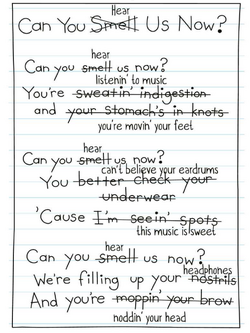 Hear
Can You Smell Us Now?
hear
Can you smell us now?
listenin' to music
You're sweatin' indigestion
and your stomach's in knots
you're movin' your feet
hear
Can you smell us now?
can't believe your eardrums
You better check your
underwear
'Cause I'm seein' spots
this music is sweet
hear
Can you smell us now?
headphones
We're filling up your nostrils
And you're moppin' your brow
noddin' your head